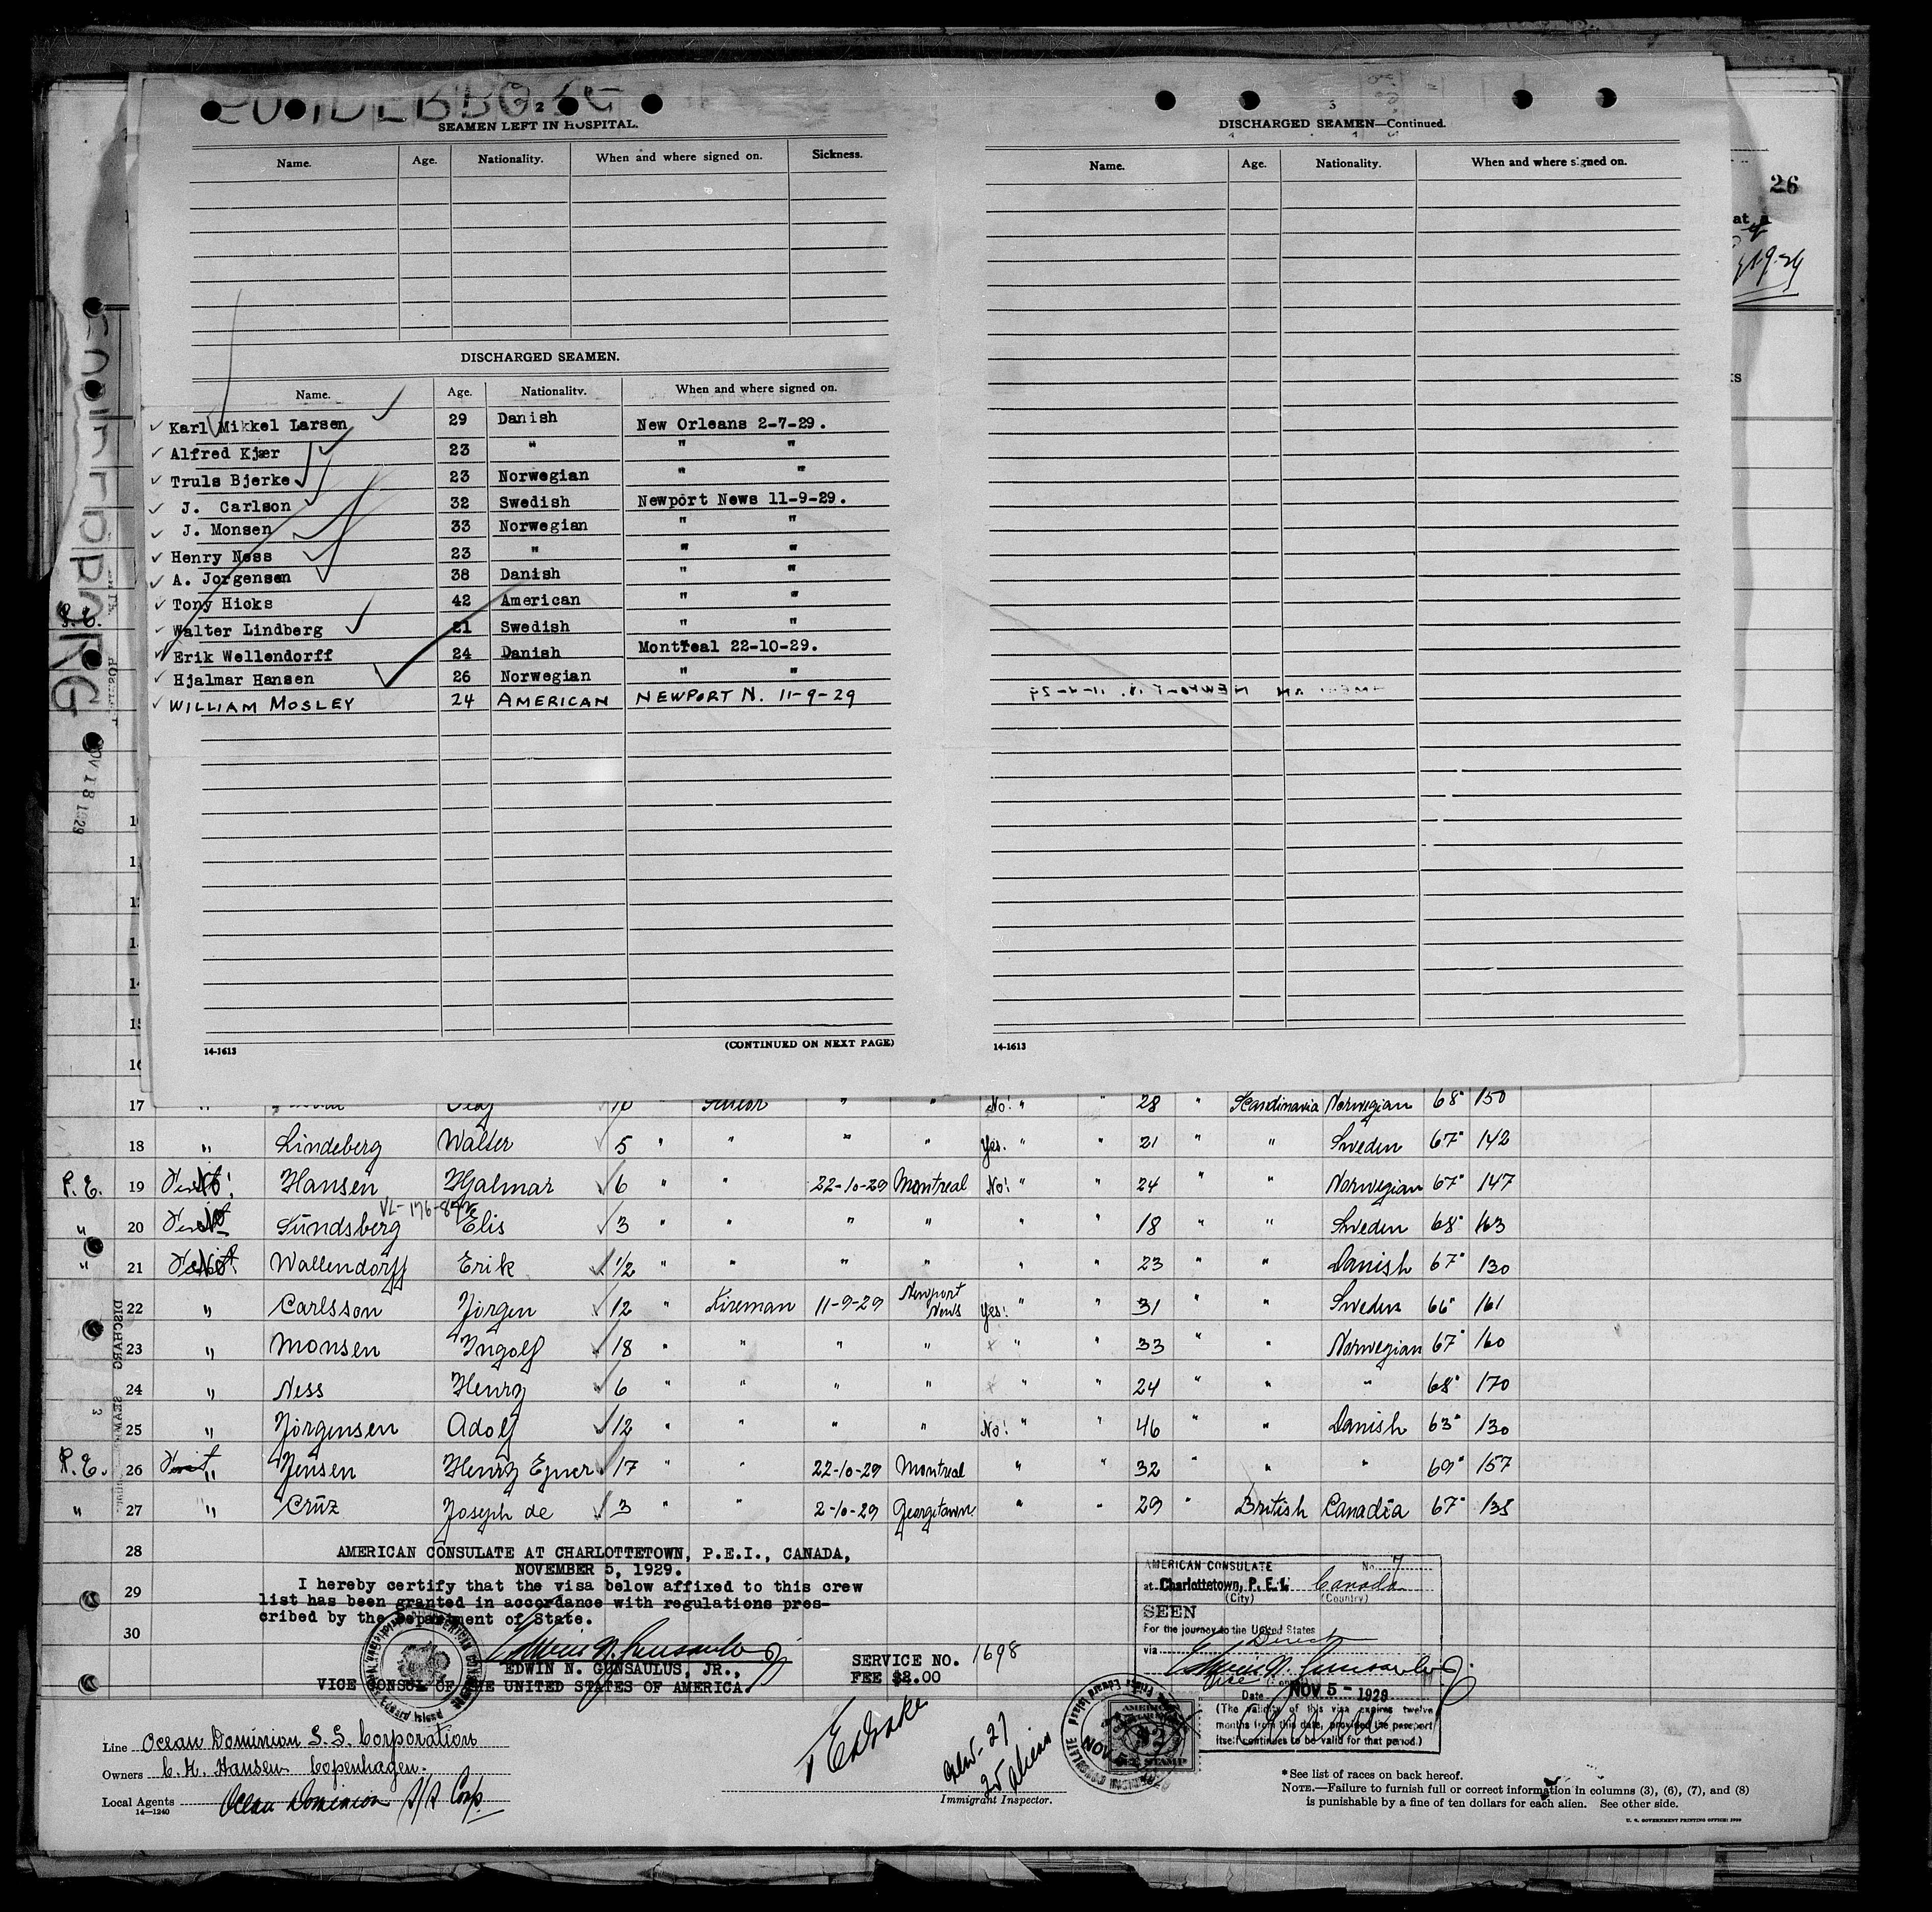 2
SEAMEN LEFT IN HOSPITAL.
Name. Age. Nationality. When and where signed on. Sickness.
DISCHARGED SEAMEN.
Name. Age. Nationality. When and where signed on.
Karl Mikkel Larsen 29 Danish New Orleans 2-7-29.
Alfred Kjær 23 " " "
Truls Bjerke 23 Norwegian " "
J. Carlson 32 Swedish Newport News 11-9-29.
J. Monsen 33 Norwegian " "
Henry Ness 23 " " "
A. Jorgensen 38 Danish " "
Tony Hicks 42 American " "
Walter Lindberg 21 Swedish " "
Erik Wellendorff 24 Danish Montreal 22-10-29.
Hjalmar Hansen 26 Norwegian " "
WILLIAM MOSLEY 24 AMERICAN NEWPORT N. 11-9-29
14-1613 (CONTINUED ON NEXT PAGE)
3
DISCHARGED SEAMEN—Continued.
Name. Age. Nationality. When and where signed on.
14-1613
26
P.E.
NOV 18 1929
16
17 " Olaf 10 " " " No! " " 28 " Scandinavia Norwegian 68" 150
18 " Lindeberg Walter 5 " " " " Yes. " " 21 " " Sweden 67" 142
P.E. 19 No! Hansen Hjalmar 6 " " 22-10-29 Montreal No! " 24 " " Norwegian 67" 147
" 20 Sundsberg Elis 3 " " " " " " 18 " " Sweden 68" 163
" 21 Wallendorff Erik 1/2 " " " " " " 23 " " Danish 67" 130
22 " Carlsson Jörgen 12 " Fireman 11-9-29 Newport News Yes! " " 31 " " Sweden 66" 161
23 " Monsen Ingolf 18 " " " " " " 33 " " Norwegian 67" 160
24 " Ness Henry 6 " " " " " 24 " " " 68" 170
25 " Jörgensen Adolf 12 " " " " No! " " 46 " " Danish 63" 130
P.E. 26 " Jensen Henry Ejner 17 " " 22-10-29 Montreal " " 32 " " " 69" 157
" 27 " Cruz Joseph de 3 " " 2-10-29 Georgetown " " 29 " British Canadia 67" 138
28
29
30
AMERICAN CONSULATE AT CHARLOTTETOWN, P.E.I., CANADA,
NOVEMBER 5, 1929.
I hereby certify that the visa below affixed to this crew
list has been granted in accordance with regulations pres-
cribed by the Department of State.
EDWIN N. GUNSAULUS, JR.,
VICE CONSUL OF THE UNITED STATES OF AMERICA.
SERVICE NO. 1698
FEE $2.00
AMERICAN CONSULATE No. 7
at Charlottetown, P. E. I. Canada
(City) (Country)
SEEN
For the journey to the United States
via Direct
Date NOV 5 - 1929
(The validity of this visa expires twelve
months from this date, provided the passport
itself continues to be valid for that period.)
Line Ocean Dominion S.S. Corporation
Owners C. K. Hansen Copenhagen.
Local Agents Ocean Dominion S/S Corp.
14—1240
Immigrant Inspector.
*See list of races on back hereof.
NOTE.—Failure to furnish full or correct information in columns (3), (6), (7), and (8)
is punishable by a fine of ten dollars for each alien. See other side.
U. S. GOVERNMENT PRINTING OFFICE: 1929